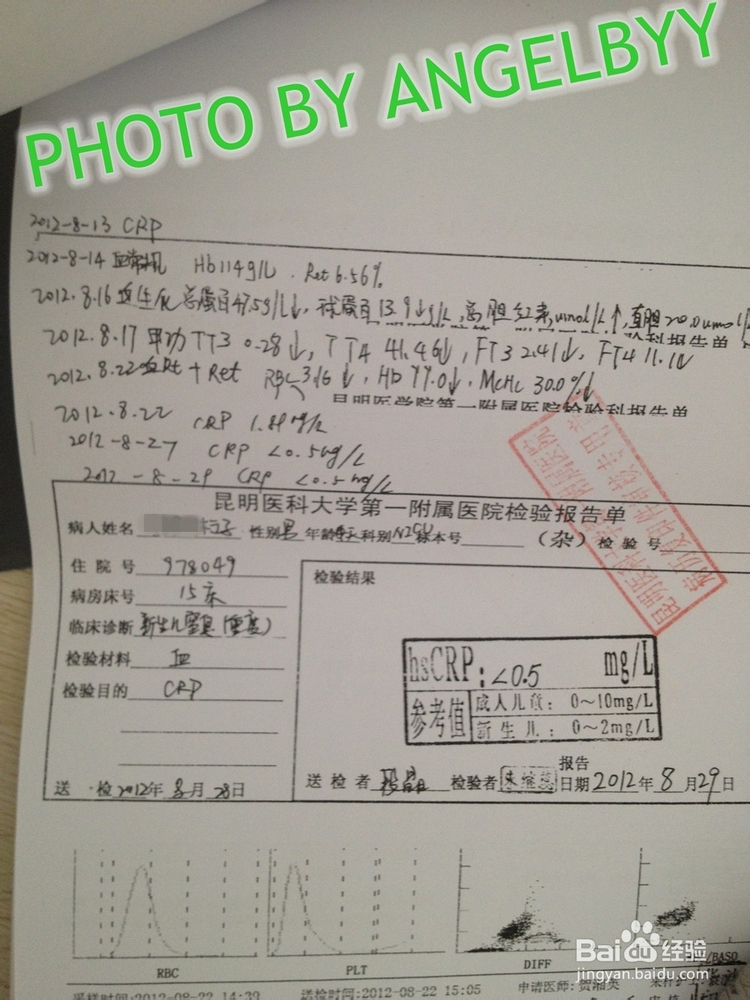 PHOTO BY ANGELBYY
2012-8-13 CRP
2012-8-14 血常规 Hb114g/L . Ret 6.56%
2012.8.16 血生化 总蛋白47.5g/L↓, 球蛋白13.9↓g/L, 总胆红素 umol/L↑, 直胆20.0umol/L
科报告单
2012.8.17 甲功 TT3 0.28↓, TT4 41.46↓, FT3 2.41↓, FT4 11.1
2012.8.22 血Rt + Ret RBC 3.16↓, Hb 99.0↓, MCHC 300
昆明医学院第一附属医院检验科报告单
2012.8.22 CRP 1.8 mg/L
2012-8-27 CRP <0.5mg/L
2012-8-29 CRP <0.5mg/L
昆明医科大学第一附属医院检验报告单
病人姓名 性别 男 年龄 科别 NICU 标本号 (杂) 检验号
住院号 978049
病房床号 15床
临床诊断 新生儿窒息(重度)
检验材料 血
检验目的 CRP
检验结果
hsCRP: <0.5 mg/L
参考值 成人儿童: 0~10mg/L
新生儿: 0~2mg/L
送 检 2012年 8月 28日
送检者 检验者 报告日期 2012年 8月 29日
RBC PLT DIFF /BASO
采样时间:2012-08-22 14:39 送检时间:2012-08-22 15:05 申请医师:贺湘英
Baidu经验
jingyan.baidu.com